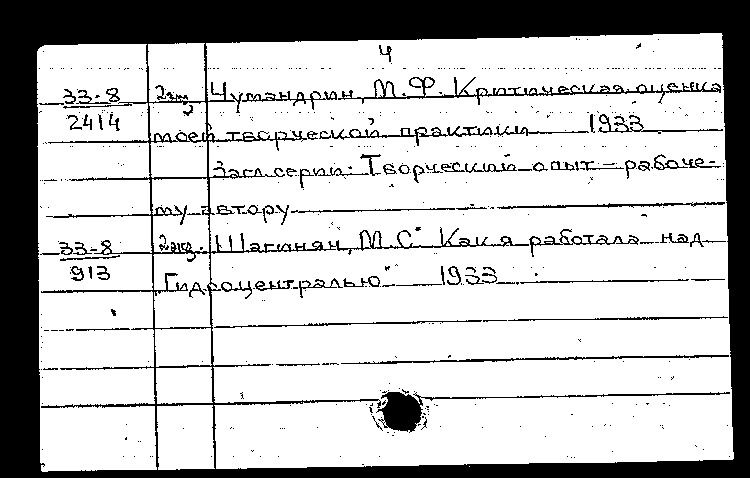 4
33-8 2экз Чумандрин, М.Ф. Критическая оценка
2414 моей творческой практики 1933
Загл.серии: Творческий опыт - рабоче-
му автору
33-8 2экз. Шагинян, М.С. Как я работала над
913 "Гидроцентралью" 1933